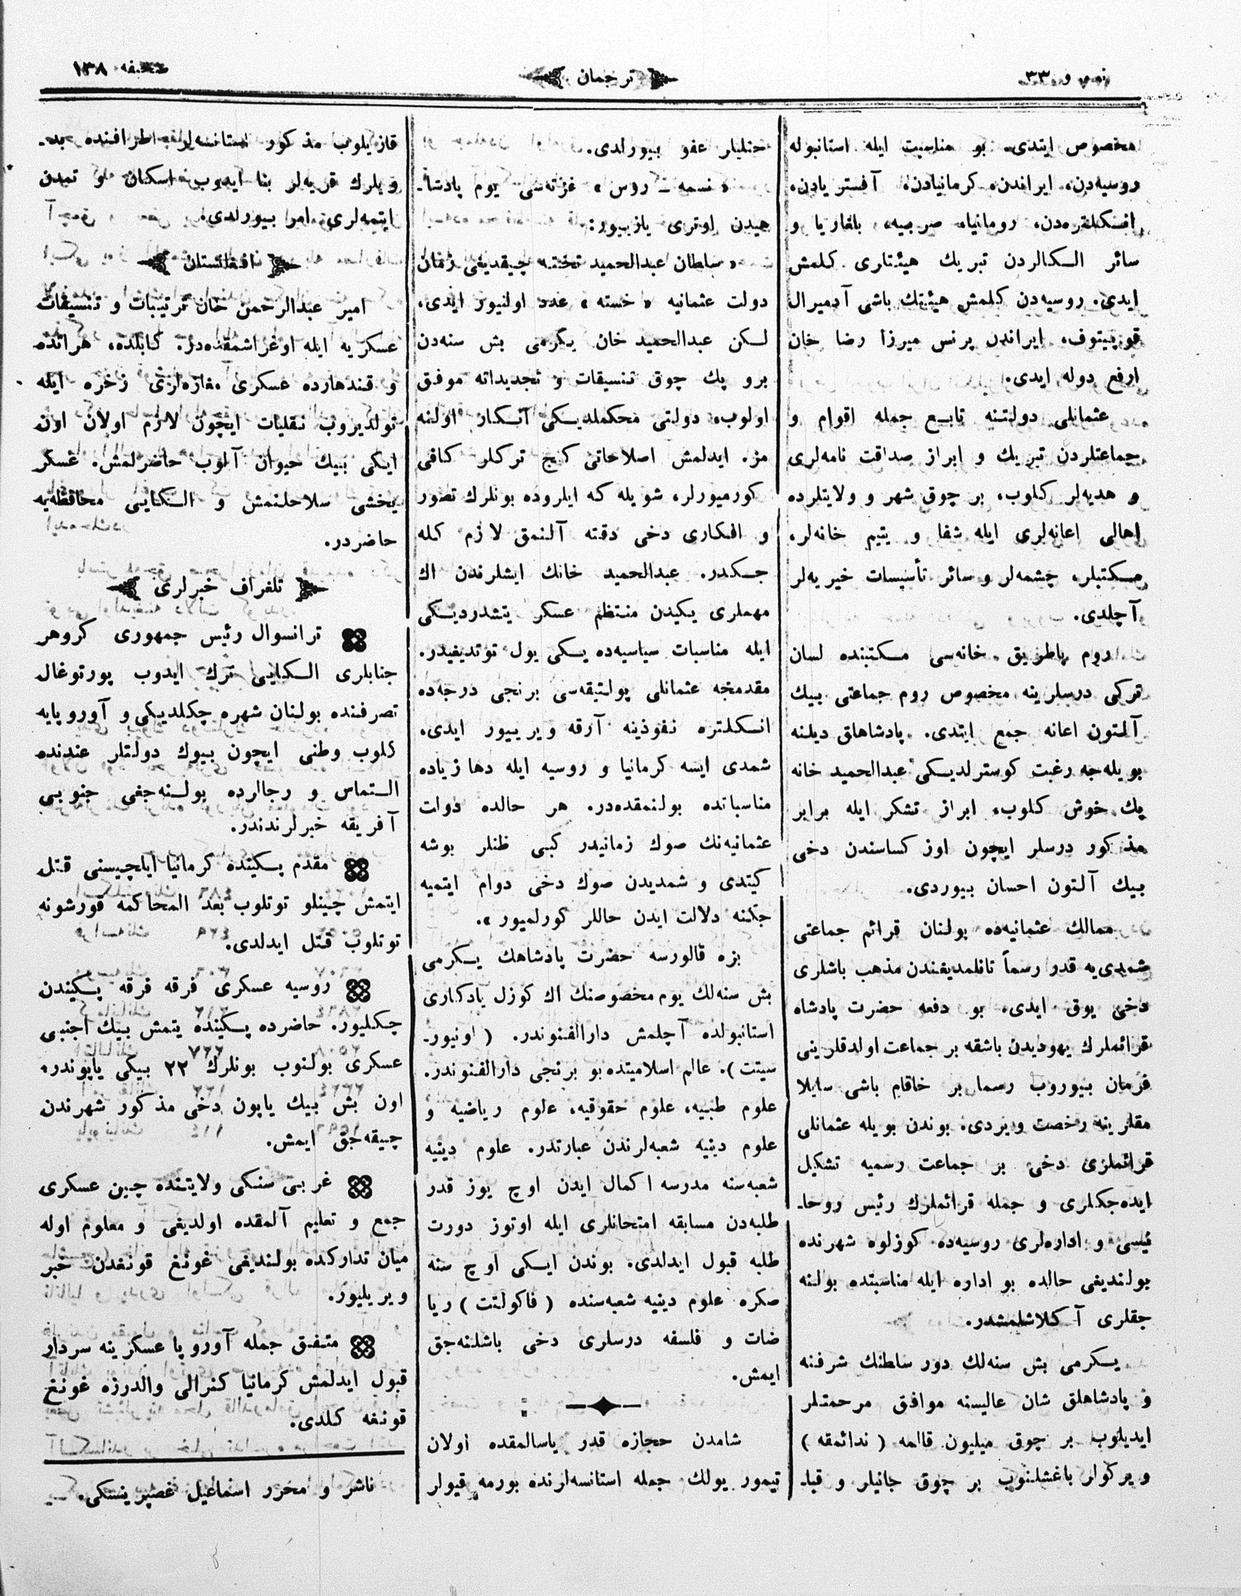 نمرو ۳۳
ترجمان
صحیفه ۱۳۸
مخصوص ایتدی. بو مناسبت ایله استانبوله
روسیه‌دن، ایراندن، کرمانیادن، آفستریادن،
انسکلتره‌دن، رومانیا، صربیه، بلغاریا و
سائر السکالردن تبریك هیئتلری کلمش
ایدی. روسیه‌دن کلمش هیئتك باشی آدمیرال
ایراندن پرنس میرزا رضا خان
ارفع دوله ایدی.
عثمانلی دولتنه تابع جمله اقوام و
جماعتلردن تبریك و ابراز صداقت نامه‌لری
و هدیه‌لر کلوب، بر چوق شهر و ولایتلرده
اهالی اعانه‌لری ایله شفا و یتیم خانه‌لر،
مکتبلر، چشمه‌لر و سائر تأسیسات خیریه‌لر
آچلدی.
روم پاطریق خانه‌سی مکتبنده لسان
ترکی درسلرینه مخصوص روم جماعتی بیك
آلتون اعانه جمع ایتدی. پادشاهلق دیلنه
بویله‌جه رغبت کوسترلدیکی عبدالحمید خانه
پك خوش کلوب، ابراز تشکر ایله برابر
مذکور درسلر ایچون اوز کساسندن دخی
بیك آلتون احسان بیوردی.
ممالك عثمانیه‌ده بولنان قرائم جماعتی
شمدی‌یه قدر رسماً تانلمدیغندن مذهب باشلری
دخی یوق ایدی. بو دفعه حضرت پادشاه
قرائملرك یهودیدن باشقه بر جماعت اولدقلرینی
فرمان بیوروب رسما بر خاقام باشی سایلا
مقلرینه رخصت ویردی. بوندن بویله عثمانلی
قرائملری دخی بر جماعت رسمیه تشکیل
ایده‌جکلری و جمله قرائملرك رئیس روحا-
نیسی و اداره‌لری روسیه‌ده کوزلوه شهرنده
بولندیغی حالده بو اداره ایله مناسبتده بولنه
جقلری آکلاشلمشدر.
یکرمی بش سنه‌لك دور سلطنك شرفنه
و پادشاهلق شان عالیسنه موافق مرحمتلر
ایدیلوب بر چوق میلیون قالمه ( ندائمقه )
ویرکولر باغشلنوب بر چوق جانیلر و قبا-
حتلیلر عفو بیورلدی.
غزته‌سی یوم پادشا-
هیدن اوتری یازییور:
« سلطان عبدالحمید تخته چیقدیغی زمان
دولت عثمانیه « خسته » عدد اولنیور ایدی،
لکن عبدالحمید خان یکرمی بش سنه‌دن
برو پك چوق تنسیقات و تجدیداته موفق
اولوب، دولتی محکملدیکی انکار اولنه
مز. ایدلمش اصلاحاتی کنج ترکلر کافی
کورمیورلر، شویله که ایلروده بونلرك تصور
و افکاری دخی دقته آلنمق لازم کله
جکدر. عبدالحمید خانك ایشلرندن اك
مهملری یکیدن منتظم عسکر یتشدردیکی
ایله مناسبات سیاسیه‌ده یکی یول توتدیغیدر.
مقدمجه عثمانلی پولتیقه‌سی برنجی درجه‌ده
انکلتره نفوذینه آرقه ویرییور ایدی.
شمدی ایسه کرمانیا و روسیه ایله دها زیاده
مناسباتده بولنمقده‌در. هر حالده دولت
عثمانیه‌نك صوك زمانیدر کبی ظنلر بوشه
کیتدی و شمدیدن صوك دخی دوام ایتمیه
جکنه دلالت ایدن حاللر کورلمیور ».
بزه قالورسه حضرت پادشاهك یکرمی
بش سنه‌لك یوم مخصوصنك اك کوزل یادکاری
استانبولده آچلمش دارالفنوندر. ( اونیور-
سیتت ). عالم اسلامیتده بو برنجی دارالفنوندر.
علوم طبیه، علوم حقوقیه، علوم ریاضیه و
علوم دینیه شعبه‌لرندن عبارتدر. علوم دینیه
شعبه‌سنه مدرسه اکمال ایدن اوچ یوز قدر
طلبه‌دن مسابقه امتحانلری ایله اوتوز دورت
طلبه قبول ایدلدی. بوندن ایکی اوچ سنه
صکره علوم دینیه شعبه‌سنده ( فاکولتت ) ریا
ضات و فلسفه درسلری دخی باشلنه‌جق
ایمش.
شامدن حجازه قدر یاسالمقده اولان
تیمور یولك جمله استانسه‌لرنده بورمه قیولر
قازیلوب مذکور استانسه‌لر اطرافنده بد-
ویلرك قریه‌لر بنا ایدوب اسکان و تمدن
ایتمه‌لری امرا بیورلدی.
افغانستان
امیر عبدالرحمن خان ترتیبات و تنسیقات
عسکریه ایله اوغراشمقده‌در. کابلده، هراتده
و قندهارده عسکری مغازه‌لری زخره ایله
تولدیروب نقلیات ایچون لازم اولان اون
ایکی بیك حیوان آلوب حاضرلمش. عسکر
یخشی سلاحلنمش و السکایی محافظه‌یه
حاضردر.
تلغراف خبرلری
ترانسوال رئیس جمهوری کروهر
جنابلری السکایی ترك ایدوب پورتوغال
تصرفنده بولنان شهره چکلدیکی و آوروپایه
کلوب وطنی ایچون بیوك دولتلر عندنده
التماس و رجالرده بولنه‌جغی جنوبی
آفریقه خبرلرندندر.
مقدم پکینده کرمانیا ایلچیسنی قتل
ایتمش چینلو توتلوب بعد المحاکمه قورشونه
توتلوب قتل ایدلدی.
روسیه عسکری فرقه فرقه پکیندن
چکلیور. حاضرده پکینده یتمش بیك اجنبی
عسکری بولنوب بونلرك ۲۲ بیکی یاپوندر.
اون بش بیك یاپون دخی مذکور شهرندن
چیقه‌جق ایمش.
غربی سنکی ولایتنده چین عسکری
جمع و تعلیم آلمقده اولدیغی و معلوم اوله
میان تدارکده بولندیغی غونغ قونغدن خبر
ویریلیور.
متفق جمله آوروپا عسکرینه سردار
قبول ایدلمش کرمانیا کنرالی والدرزه غونغ
قونغه کلدی.
ناشر و محرر اسماعیل غصپرینسکی.